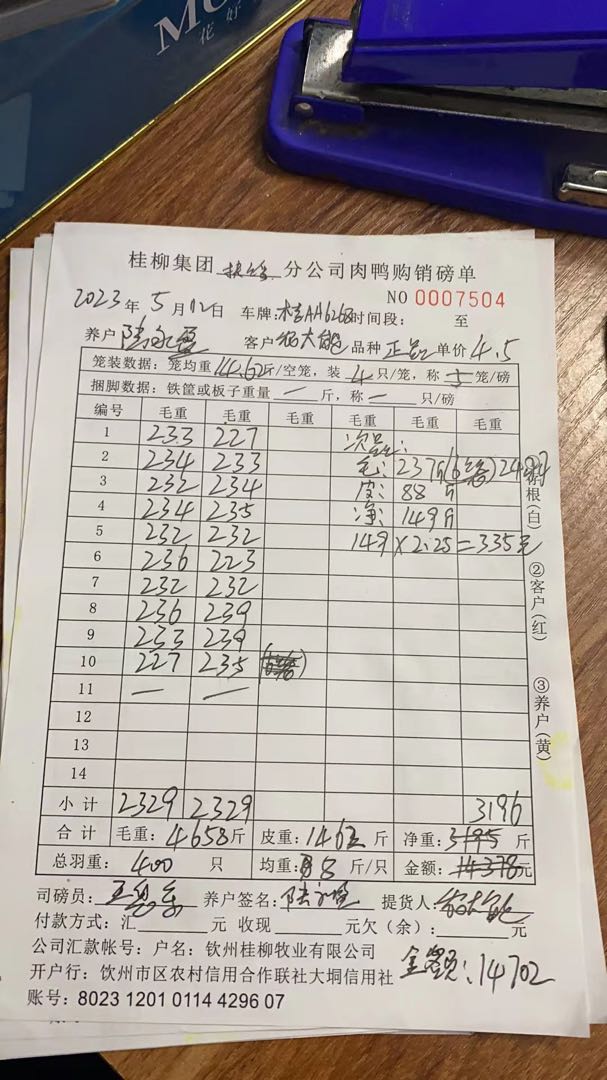 MU
佗 好
桂柳集团 分公司肉鸭购销磅单
NO 0007504
2023年 5月12日 车牌:桂AH6268 时间段: 至
养户 陆 客户 大能 品种 正品 单价 4.5
笼装数据: 笼均重 14.62 斤/空笼, 装 4 只/笼, 称 5 笼/磅
捆脚数据: 铁筐或板子重量 — 斤, 称 — 只/磅
编号 毛重 毛重 毛重 毛重 毛重 毛重
1 233 227 次品:
2 234 233 毛: 237斤(6笼)24只
3 232 234 皮: 88斤
4 234 235 净: 149斤
5 232 232 149×2.25=335元
6 236 223
7 232 232
8 236 239
9 233 239
10 227 235
11 — —
12
13
14
小计 2329 2329 3196
合计 毛重: 4658斤 皮重: 1462斤 净重: 3195 斤
总羽重: 400 只 均重: 8斤/只 金额: 14378元
存根(白)
②客户(红)
③养户(黄)
司磅员: 养户签名: 陆 提货人: 大能
付款方式: 汇 元 收现 元欠(余): 元
公司汇款帐号: 户名: 钦州桂柳牧业有限公司
开户行: 钦州市区农村信用合作联社大垌信用社
金额: 14702
账号: 8023 1201 0114 4296 07